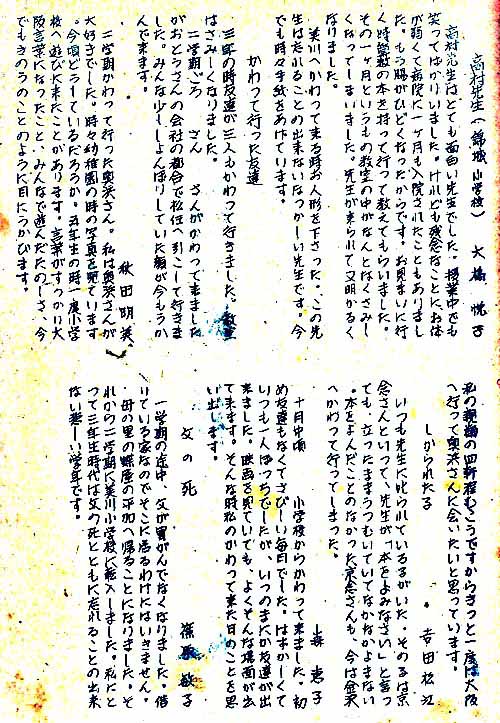 高村先生(錦城小学校)　大橋悦子
高村先生はとても面白い先生でした。授業中でも
笑ってばかりいました。けれども残念なことに、お体
が弱くて病院に一ヶ月も入院されたこともありまし
た。もう腸がひどくなったからです。お見まいに行
く時算数の本を持って行って教えてもらいました。
その一ヶ月というもの教室の中がなんとはなくさみし
くなってしまいました。先生が来られて又明かるく
なりました。
美川へかわって来る時お人形を下さった。この先
生は忘れることの出来ないなつかしい先生です。今
でも時々手紙をあげています。
かわって行った友達
三年の時友達が三人もかわって行きました。教室
はさみしくなりました。
二学期ごろ　さん　さんがかわって来ました
がおとうさんの会社の都合で松任へ引こして行きま
した。みんな少ししょんぼりしていた顔が今もうか
んで来ます。
秋田明美
二学期かわって行った奥浜さん。私は奥浜さんが
大好きでした。時々幼稚園の時の写真を見ています
。今頃どうしているだろうか。五年生の時一度小学
校へ遊びに来たことがあります。言葉がすっかり大
阪言葉になったこと、みんなで遊んだたのしさ、今
でもきのうのことのように目にうかびます。
私の親類の四軒程むこうですからきっと一度は大阪
へ行って奥浜さんに会いたいと思っています。
しかられた子　幸田松江
いつも先生に叱られている子がいた。その子は京
念さんといって、先生が「本をよみなさい」と言っ
ても、立ったままうつむいていてなかなかよまない
。本をよんだことのなかった京念さんも、今は金沢
へかわって行ってしまった。
森　恵子
十月中頃　小学校からかわって来ました。初
め友達もなくてさびしい毎日でした。はずかしくて
いつも一人ぼっちでしたが、いつのまにか友達が出
来ました。映画を見ていても、よくそんな場面が出
て来ます。そんな時私のかわって来た日のことを思
い出します。
父の死　篠原敏子
一学期の途中、父が胃がんでなくなりました。借
りている家なのでそこに居るわけにはいきません。
母の里の蝶屋の平加へ帰ることになりました。そ
れから二学期に美川小学校に転入しました。私にと
って三年生時代は父の死とともに忘れることの出来
ない悲しい学年です。